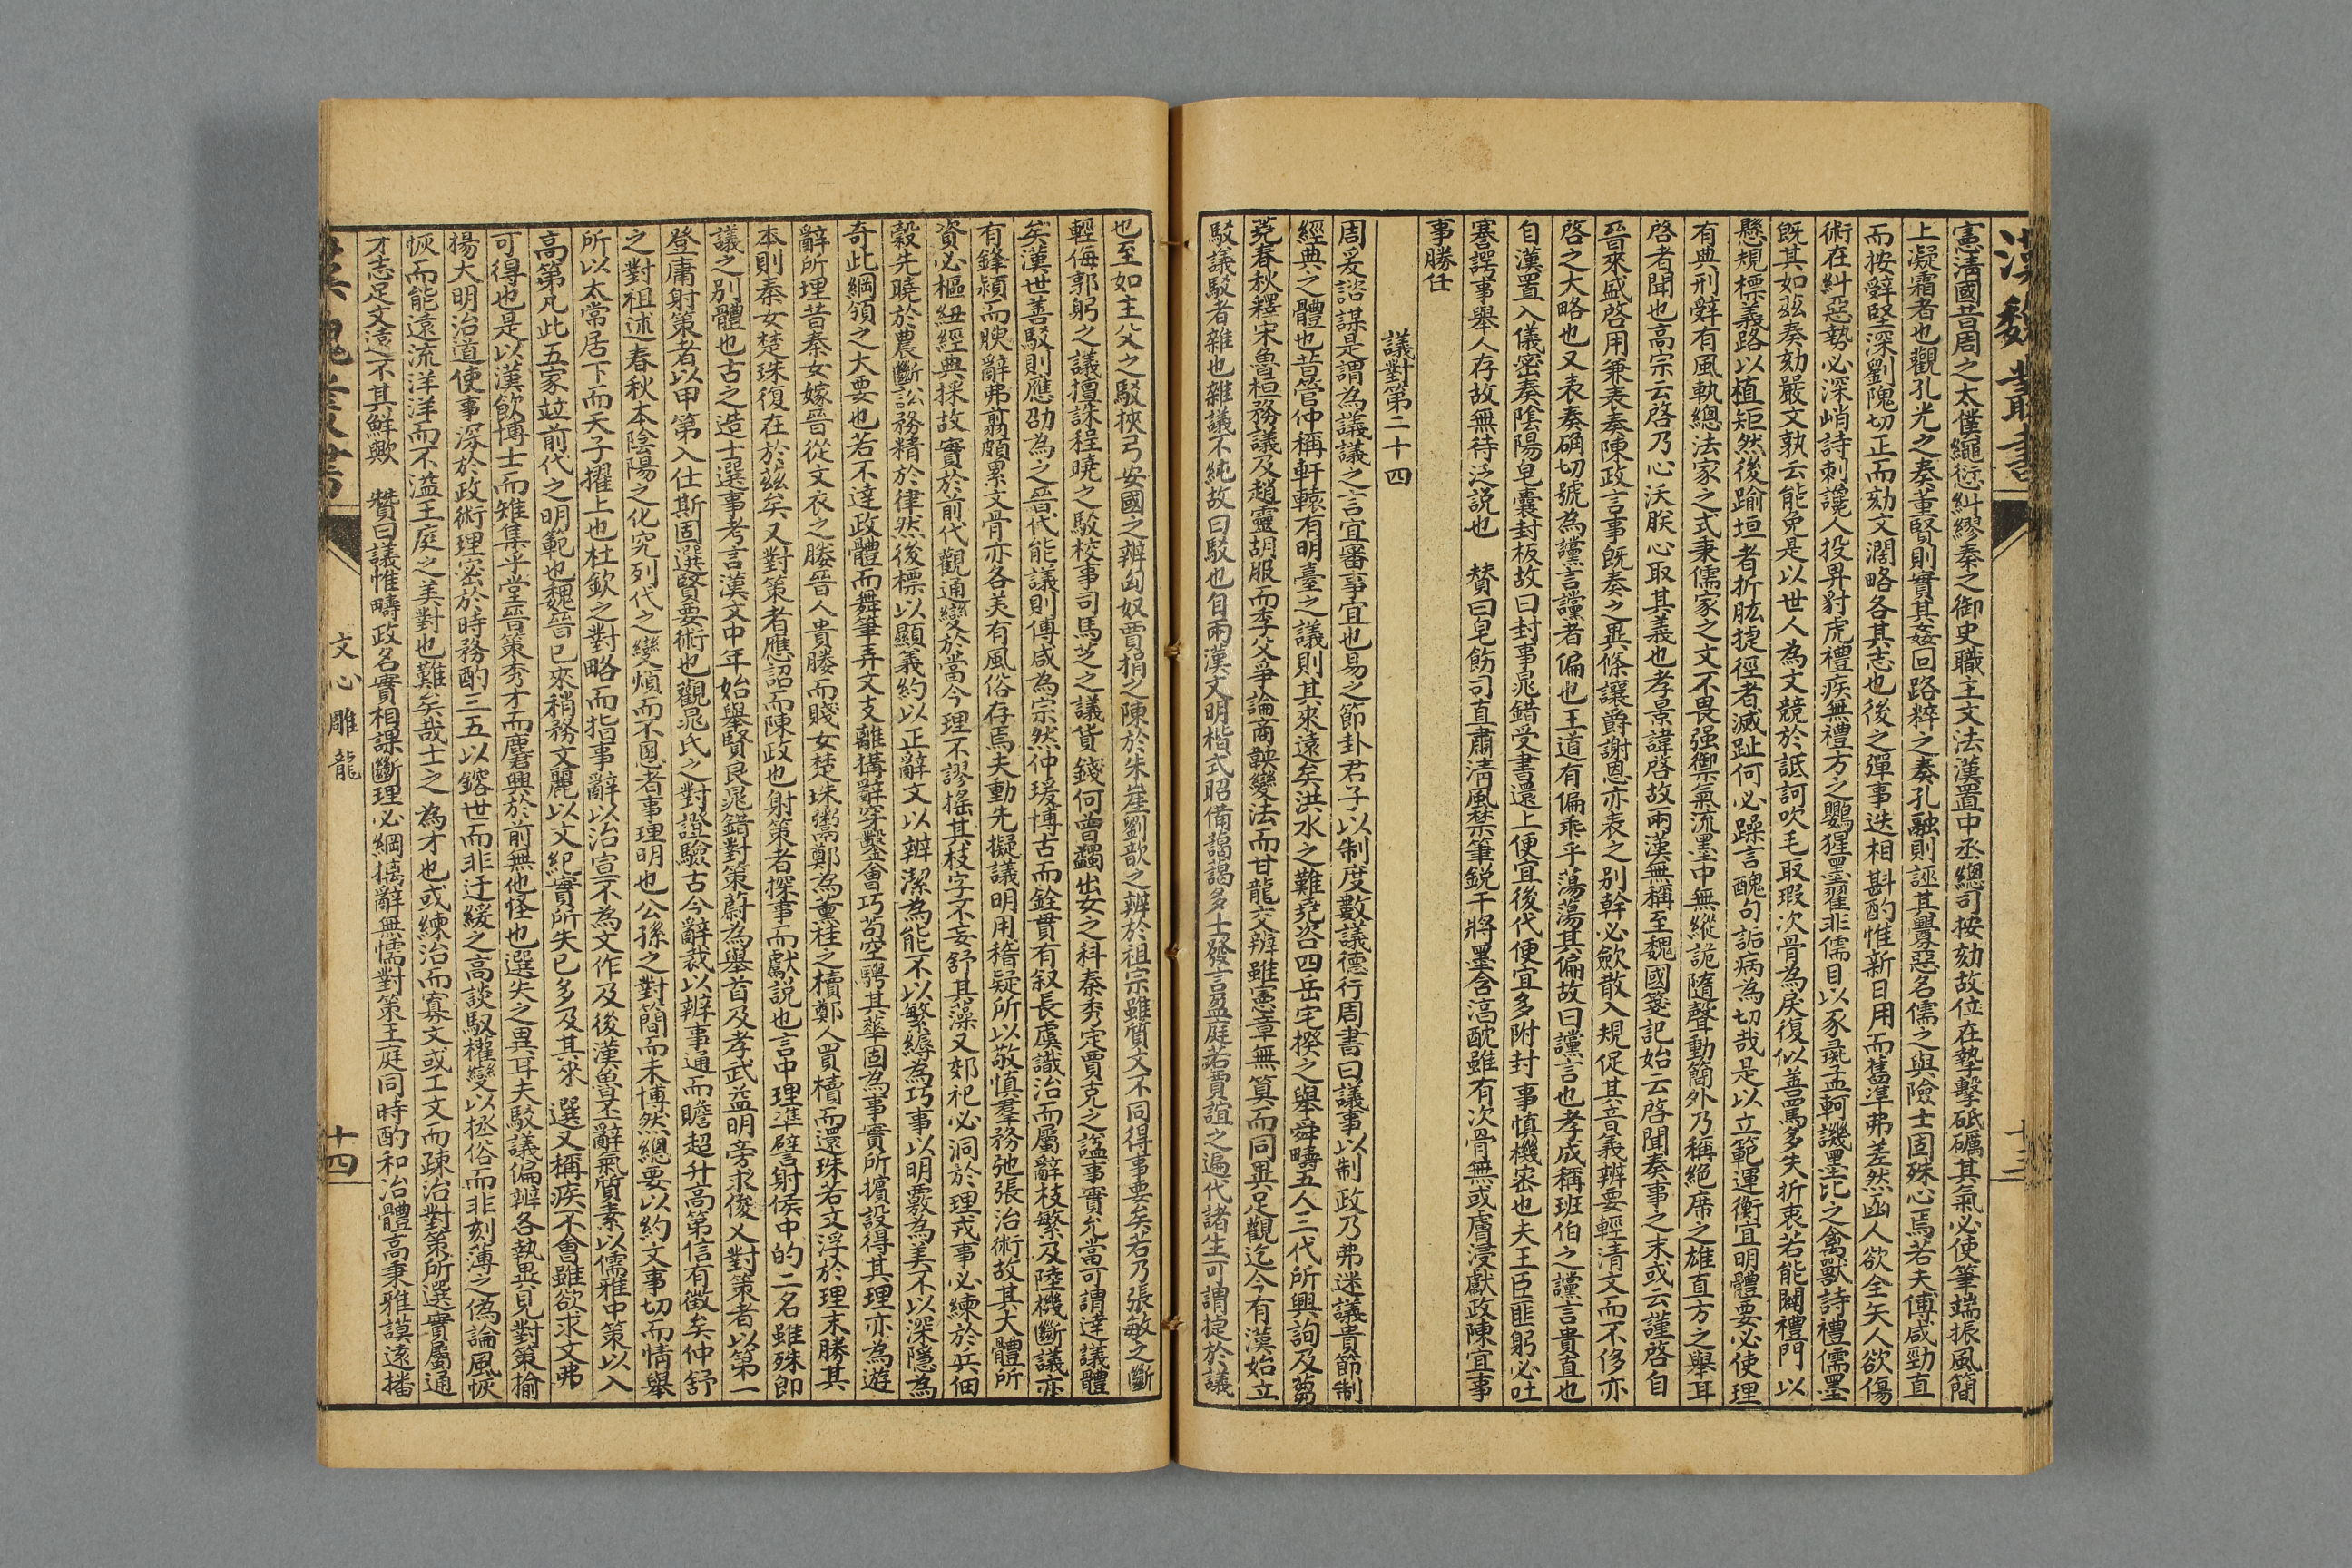 漢魏叢書
十三
憲清國昔周之太僕繩愆糾繆秦之御史職主文法漢置中丞總司按劾故位在摯擊砥礪其氣必使筆端振風簡
上凝霜者也觀孔光之奏董賢則實其姦回路粹之奏孔融則誣其釁惡名儒之與險士固殊心焉若夫傅咸勁直
而按辭堅深劉隗切正而劾文濶略各其志也後之彈事迭相斟酌惟新日用而舊準弗差然函人欲全矢人欲傷
術在糾惡勢必深峭詩刺讒人投畀豺虎禮疾無禮方之鸚猩墨翟非儒目以豕彘孟軻譏墨比之禽獸詩禮儒墨
旣其如茲奏劾嚴文孰云能免是以世人為文競於詆訶吹毛取瑕次骨為戾復似善罵多失折衷若能闢禮門以
懸規標義路以植矩然後踰垣者折肱捷徑者滅趾何必躁言醜句詬病為切哉是以立範運衡宜明體要必使理
有典刑辭有風軌總法家之式秉儒家之文不畏强禦氣流墨中無縱詭隨聲動簡外乃稱絶席之雄直方之舉耳
啓者開也高宗云啓乃心沃朕心取其義也孝景諱啓故兩漢無稱至魏國箋記始云啓聞奏事之末或云謹啓自
晉來盛啓用兼表奏陳政言事旣奏之異條讓爵謝恩亦表之別幹必斂散入規促其音義辨要輕清文而不侈亦
啓之大略也又表奏确切號為讜言讜者偏也王道有偏乖乎蕩蕩其偏故曰讜言也孝成稱班伯之讜言貴直也
自漢置入儀密奏陰陽皂囊封板故曰封事鼂錯受書還上便宜後代便宜多附封事慎機密也夫王臣匪躬必吐
謇諤事舉人存故無待泛說也 贊曰皂飭司直肅清風禁筆銳干將墨含淳酖雖有次骨無或膚浸獻政陳宜事
事勝任
議對第二十四
周爰諮謀是謂為議議之言宜審事宜也易之節卦君子以制度數議德行周書曰議事以制政乃弗迷議貴節制
經典之體也昔管仲稱軒轅有明臺之議則其來遠矣洪水之難堯咨四岳宅揆之舉舜疇五人三代所興詢及芻
蕘春秋釋宋魯桓務議及趙靈胡服而季父爭論商鞅變法而甘龍交辨雖憲章無算而同異足觀迄今有漢始立
駁議駁者雜也雜議不純故曰駁也自兩漢文明楷式昭備藹藹多士發言盈庭若賈誼之遍代諸生可謂捷於議
也至如主父之駁挾弓安國之辨匈奴賈捐之陳於朱崖劉歆之辨於祖宗雖質文不同得事要矣若乃張敏之斷
輕侮郭躬之議擅誅程曉之駁校事司馬芝之議貨錢何曾蠲出女之科秦秀定賈充之諡事實允當可謂達議體
矣漢世善駁則應劭為之晉代能議則傅咸為宗然仲瑗博古而銓貫有叙長虞識治而屬辭枝繁及陸機斷議亦
有鋒穎而腴辭弗翦頗累文骨亦各美有風俗存焉夫動先擬議明用稽疑所以敬慎羣務弛張治術故其大體所
資必樞紐經典採故實於前代觀通變於當今理不謬搖其枝字不妄舒其藻又郊祀必洞於理戎事必練於兵佃
穀先曉於農斷訟務精於律然後標以顯義約以正辭文以辨潔為能不以繁縟為巧事以明覈為美不以深隱為
奇此綱領之大要也若不達政體而舞筆弄文支離搆辭穿鑿會巧茍空騁其華固為事實所擯設得其理亦為遊
辭所埋昔秦女嫁晉從文衣之媵晉人貴媵而賤女楚珠鬻鄭為薰桂之櫝鄭人買櫝而還珠若文浮於理末勝其
本則秦女楚珠復在於茲矣又對策者應詔而陳政也射策者探事而獻說也言中理準譬射侯中的二名雖殊卽
議之別體也古之造士選事考言漢文中年始舉賢良鼂錯對策蔚為舉首及孝武益明旁求俊乂對策者以第一
登庸射策者以甲第入仕斯固選賢要術也觀鼂氏之對證驗古今辭裁以辨事通而贍超升高第信有徵矣仲舒
之對祖述春秋本陰陽之化究列代之變煩而不慁者事理明也公孫之對簡而未博然總要以約文事切而情舉
所以太常居下而天子擢上也杜欽之對略而指事辭以治宣不為文作及後漢魯丕辭氣質素以儒雅中策以入
高第凡此五家竝前代之明範也魏晉已來稍務文麗以文紀實所失已多及其來 選又稱疾不會雖欲求文弗
可得也是以漢飲博士而雉集乎堂晉策秀才而麏興於前無他怪也選失之異耳夫駁議偏辨各執異見對策揄
揚大明治道使事深於政術理密於時務酌三五以鎔世而非迂緩之高談馭權變以拯俗而非刻薄之偽論風恢
恢而能遠流洋洋而不溢王庭之美對也難矣哉士之為才也或練治而寡文或工文而疎治對策所選實屬通
才志足文遠不其鮮歟 贊曰議惟疇政名實相課斷理必綱摛辭無懦對策王庭同時酌和治體高秉雅謨遠播
漢魏叢書
文心雕龍
十四